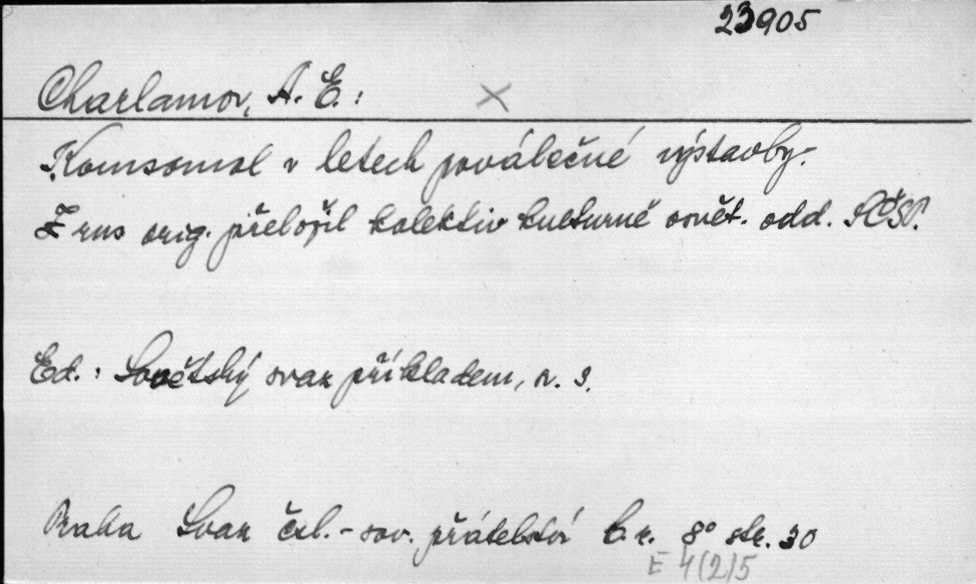 23905
Charlamov, A. E.:
Komsomol v letech poválečné výstavby.
Z rus orig. přeložil kolektiv kulturně osvět. odd. SČSP.
Ed.: Sovětský svaz příkladem, sv. 9.
Praha Svaz čsl.-sov. přátelství b. r. 8° str. 30
E 4(2)5